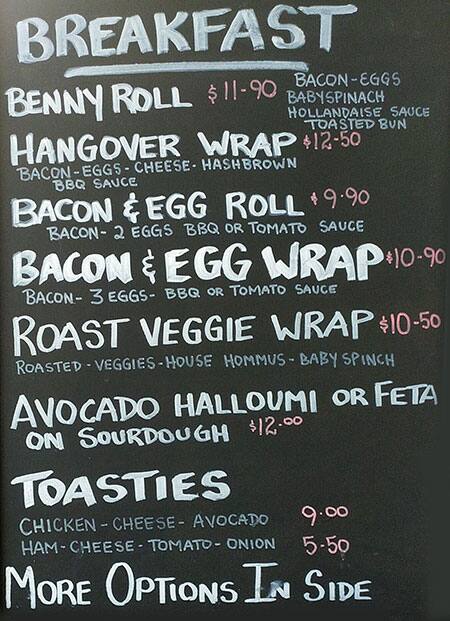 BREAKFAST
BENNY ROLL $11-90
BACON-EGGS
BABYSPINACH
HOLLANDAISE SAUCE
TOASTED BUN
HANGOVER WRAP $12-50
BACON-EGGS-CHEESE-HASHBROWN
BBQ SAUCE
BACON & EGG ROLL $9.90
BACON- 2 EGGS BBQ OR TOMATO SAUCE
BACON & EGG WRAP $10-90
BACON- 3 EGGS- BBQ OR TOMATO SAUCE
ROAST VEGGIE WRAP $10-50
ROASTED-VEGGIES-HOUSE HOMMUS-BABY SPINCH
AVOCADO HALLOUMI OR FETA
ON SOURDOUGH $12.00
TOASTIES
CHICKEN-CHEESE-AVOCADO 9.00
HAM-CHEESE-TOMATO-ONION 5.50
MORE OPTIONS IN SIDE